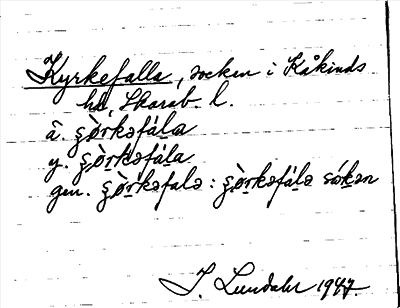 Kyrkefalla, socken i Kåkinds
hd, Skarab. l.
ä. ʂö̀rkəfála
y. ʂö̀rkəfála
gen. ʂö̀rkəfalə : ʂö̀rkəfálə sókən
I. Lundahl 1947.